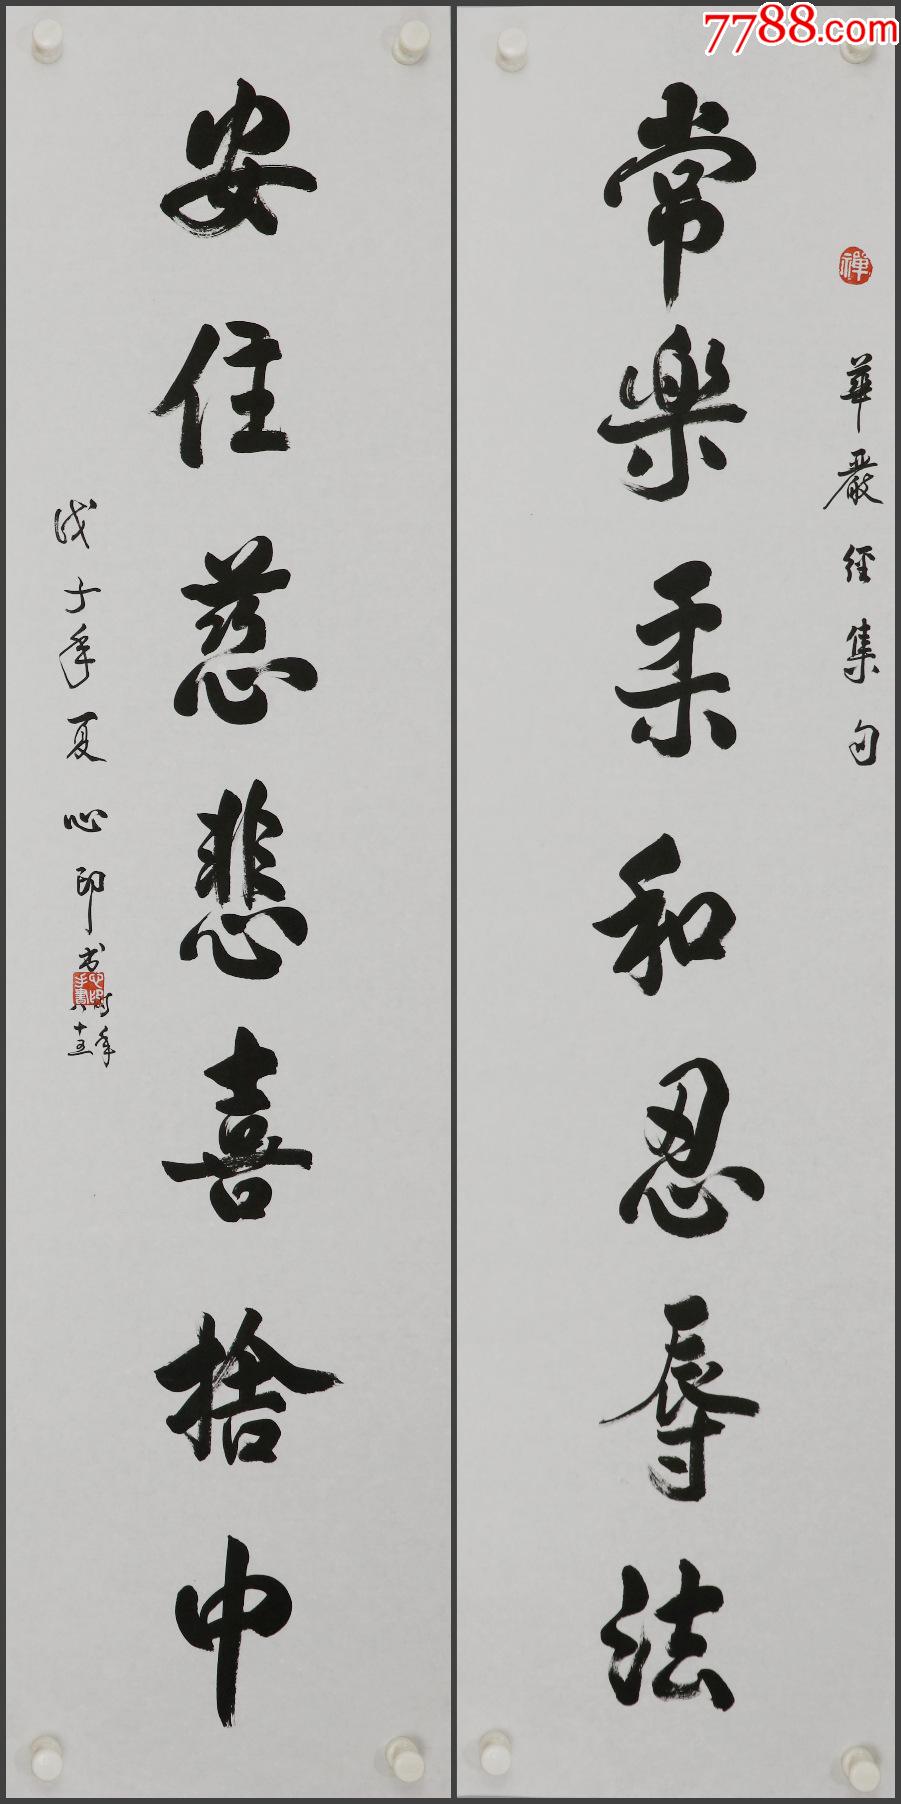 7788.com
禅
華嚴經集句
常樂柔和忍辱法
安住慈悲喜捨中
戊子年夏心印書
時年
八十五